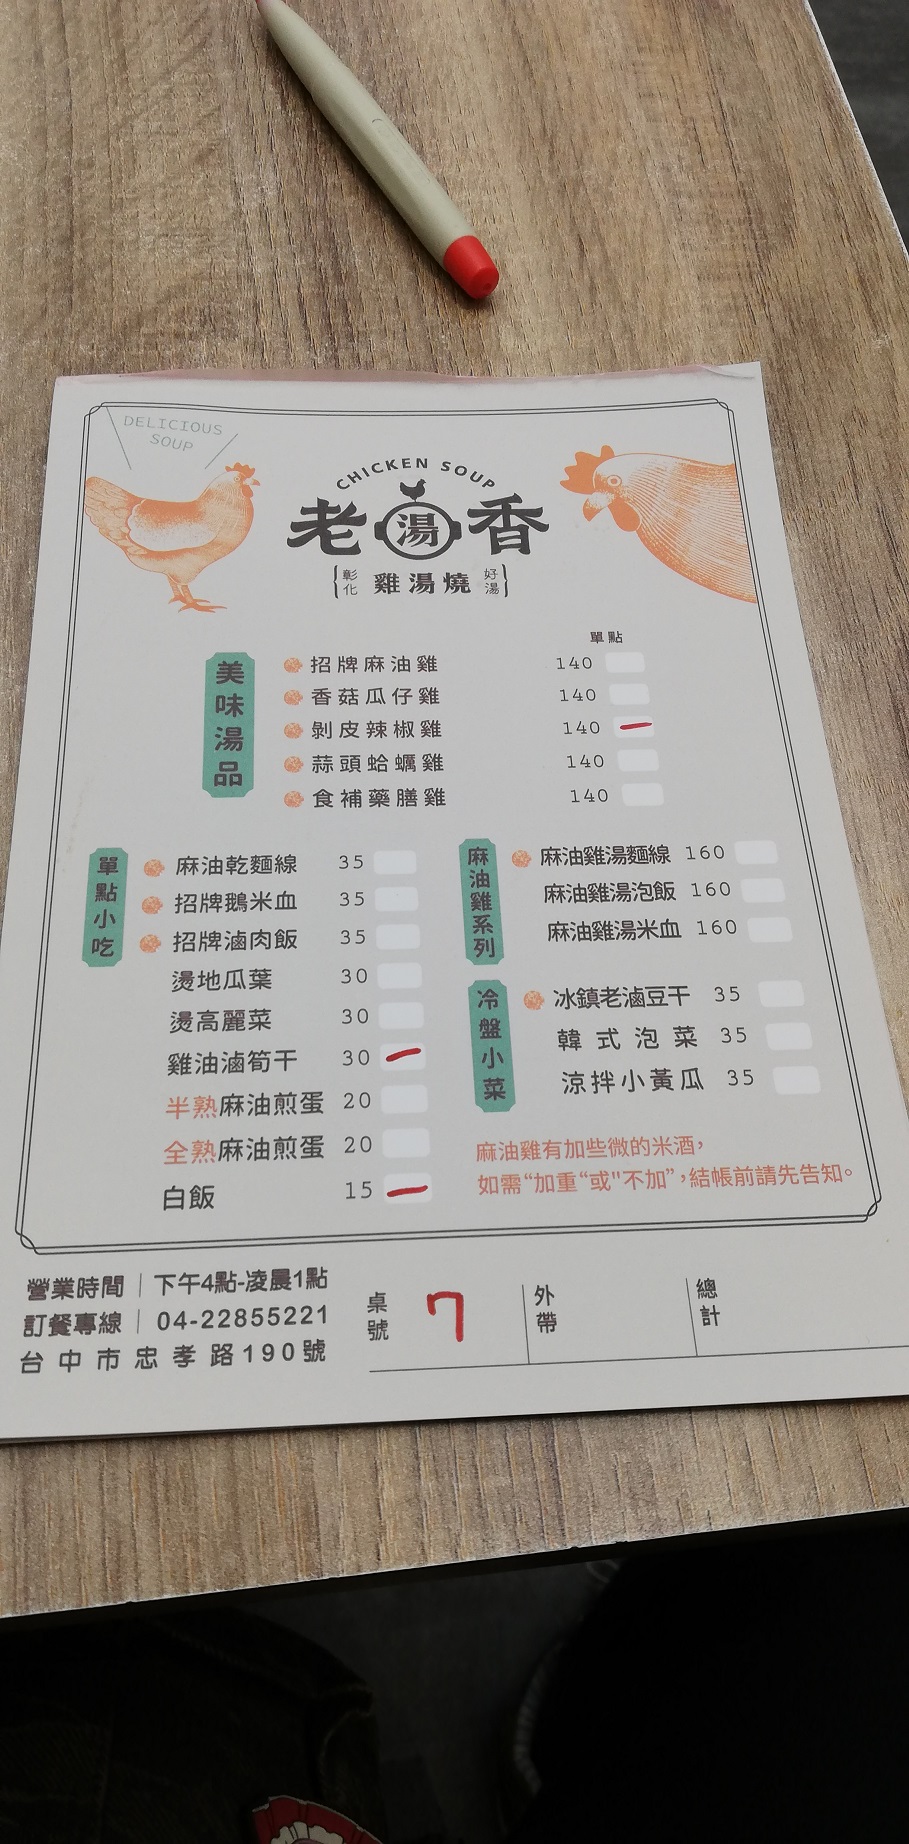 DELICIOUS
SOUP
CHICKEN SOUP
老湯香
彰化 雞湯燒 好湯
單點
美味湯品
招牌麻油雞 140
香菇瓜仔雞 140
剝皮辣椒雞 140
蒜頭蛤蠣雞 140
食補藥膳雞 140
單點小吃
麻油乾麵線 35
招牌鵝米血 35
招牌滷肉飯 35
燙地瓜葉 30
燙高麗菜 30
雞油滷筍干 30
半熟麻油煎蛋 20
全熟麻油煎蛋 20
白飯 15
麻油雞系列
麻油雞湯麵線 160
麻油雞湯泡飯 160
麻油雞湯米血 160
冷盤小菜
冰鎮老滷豆干 35
韓式泡菜 35
涼拌小黃瓜 35
麻油雞有加些微的米酒,
如需“加重“或"不加”,結帳前請先告知。
營業時間｜下午4點-凌晨1點
訂餐專線｜04-22855221
台中市忠孝路190號
桌號 7
外帶
總計